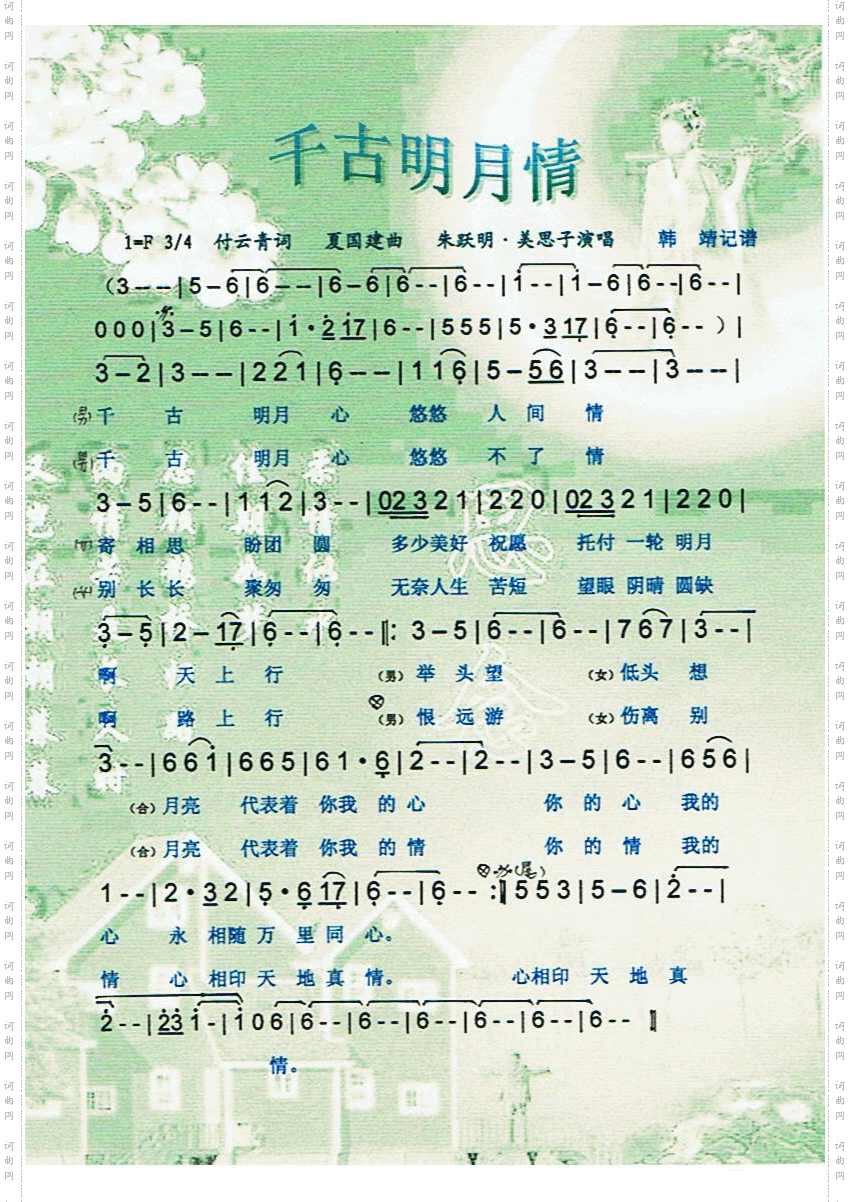 千古明月情
1=F 3/4 付云青词 夏国建曲 朱跃明·美思子演唱 韩 靖记谱
（3--|5-6|6--|6-6|6--|6--|1--|1-6|6--|6--|
000|3-5|6--|1·2 17|6--|555|5·3 17|6--|6--）|
3-2|3--|221|6--|116|5-56|3--|3--|
(男)千 古 明月 心 悠悠 人 间 情
千 古 明月 心 悠悠 不 了 情
3-5|6--|112|3--|02 3 2 1|220|02 3 2 1|220|
(女)寄 相 思 盼团 圆 多少美好 祝愿 托付 一轮 明月
(女)别 长 长 聚匆 匆 无奈人生 苦短 望眼 阴晴 圆缺
3-5|2-17|6--|6--‖: 3-5|6--|6--|767|3--|
啊 天 上 行 (男) 举 头 望 (女) 低头 想
啊 路 上 行 (男) 恨 远 游 (女) 伤离 别
3--|661|665|61·6|2--|2--|3-5|6--|656|
(合)月亮 代表着 你我 的 心 你 的 心 我的
(合)月亮 代表着 你我 的 情 你 的 情 我的
1--|2·32|5·6 17|6--|6-- :‖(尾) 553|5-6|2--|
心 永 相随 万 里 同 心。
情 心 相印 天 地 真 情。 心相印 天 地 真
2--|23 1-|106|6--|6--|6--|6--|6--|6-- ‖
情。